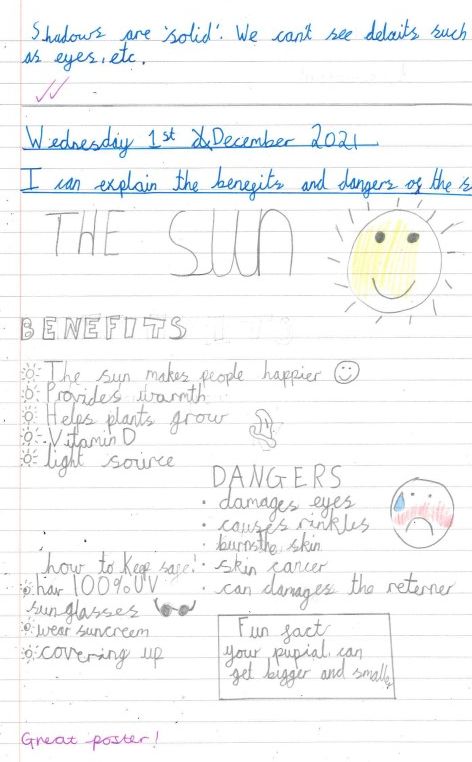 Shadows are 'solid'. We can't see delaits such
as eyes, etc.
Wednesday 1st December 2021
I can explain the benegits and dangers og the s
THE SUN
BENEFITS
The sun makes people happier
Provides warmth
Helps plants grow
Vitamin D
light source
DANGERS
damages eyes
causes rinkles
burns the skin
skin cancer
can damages the reterner
how to keep safe!
hav 100% UV
sunglasses
wear suncreem
covering up
Fun fact
your pupial can
get bigger and smaller
Great poster!